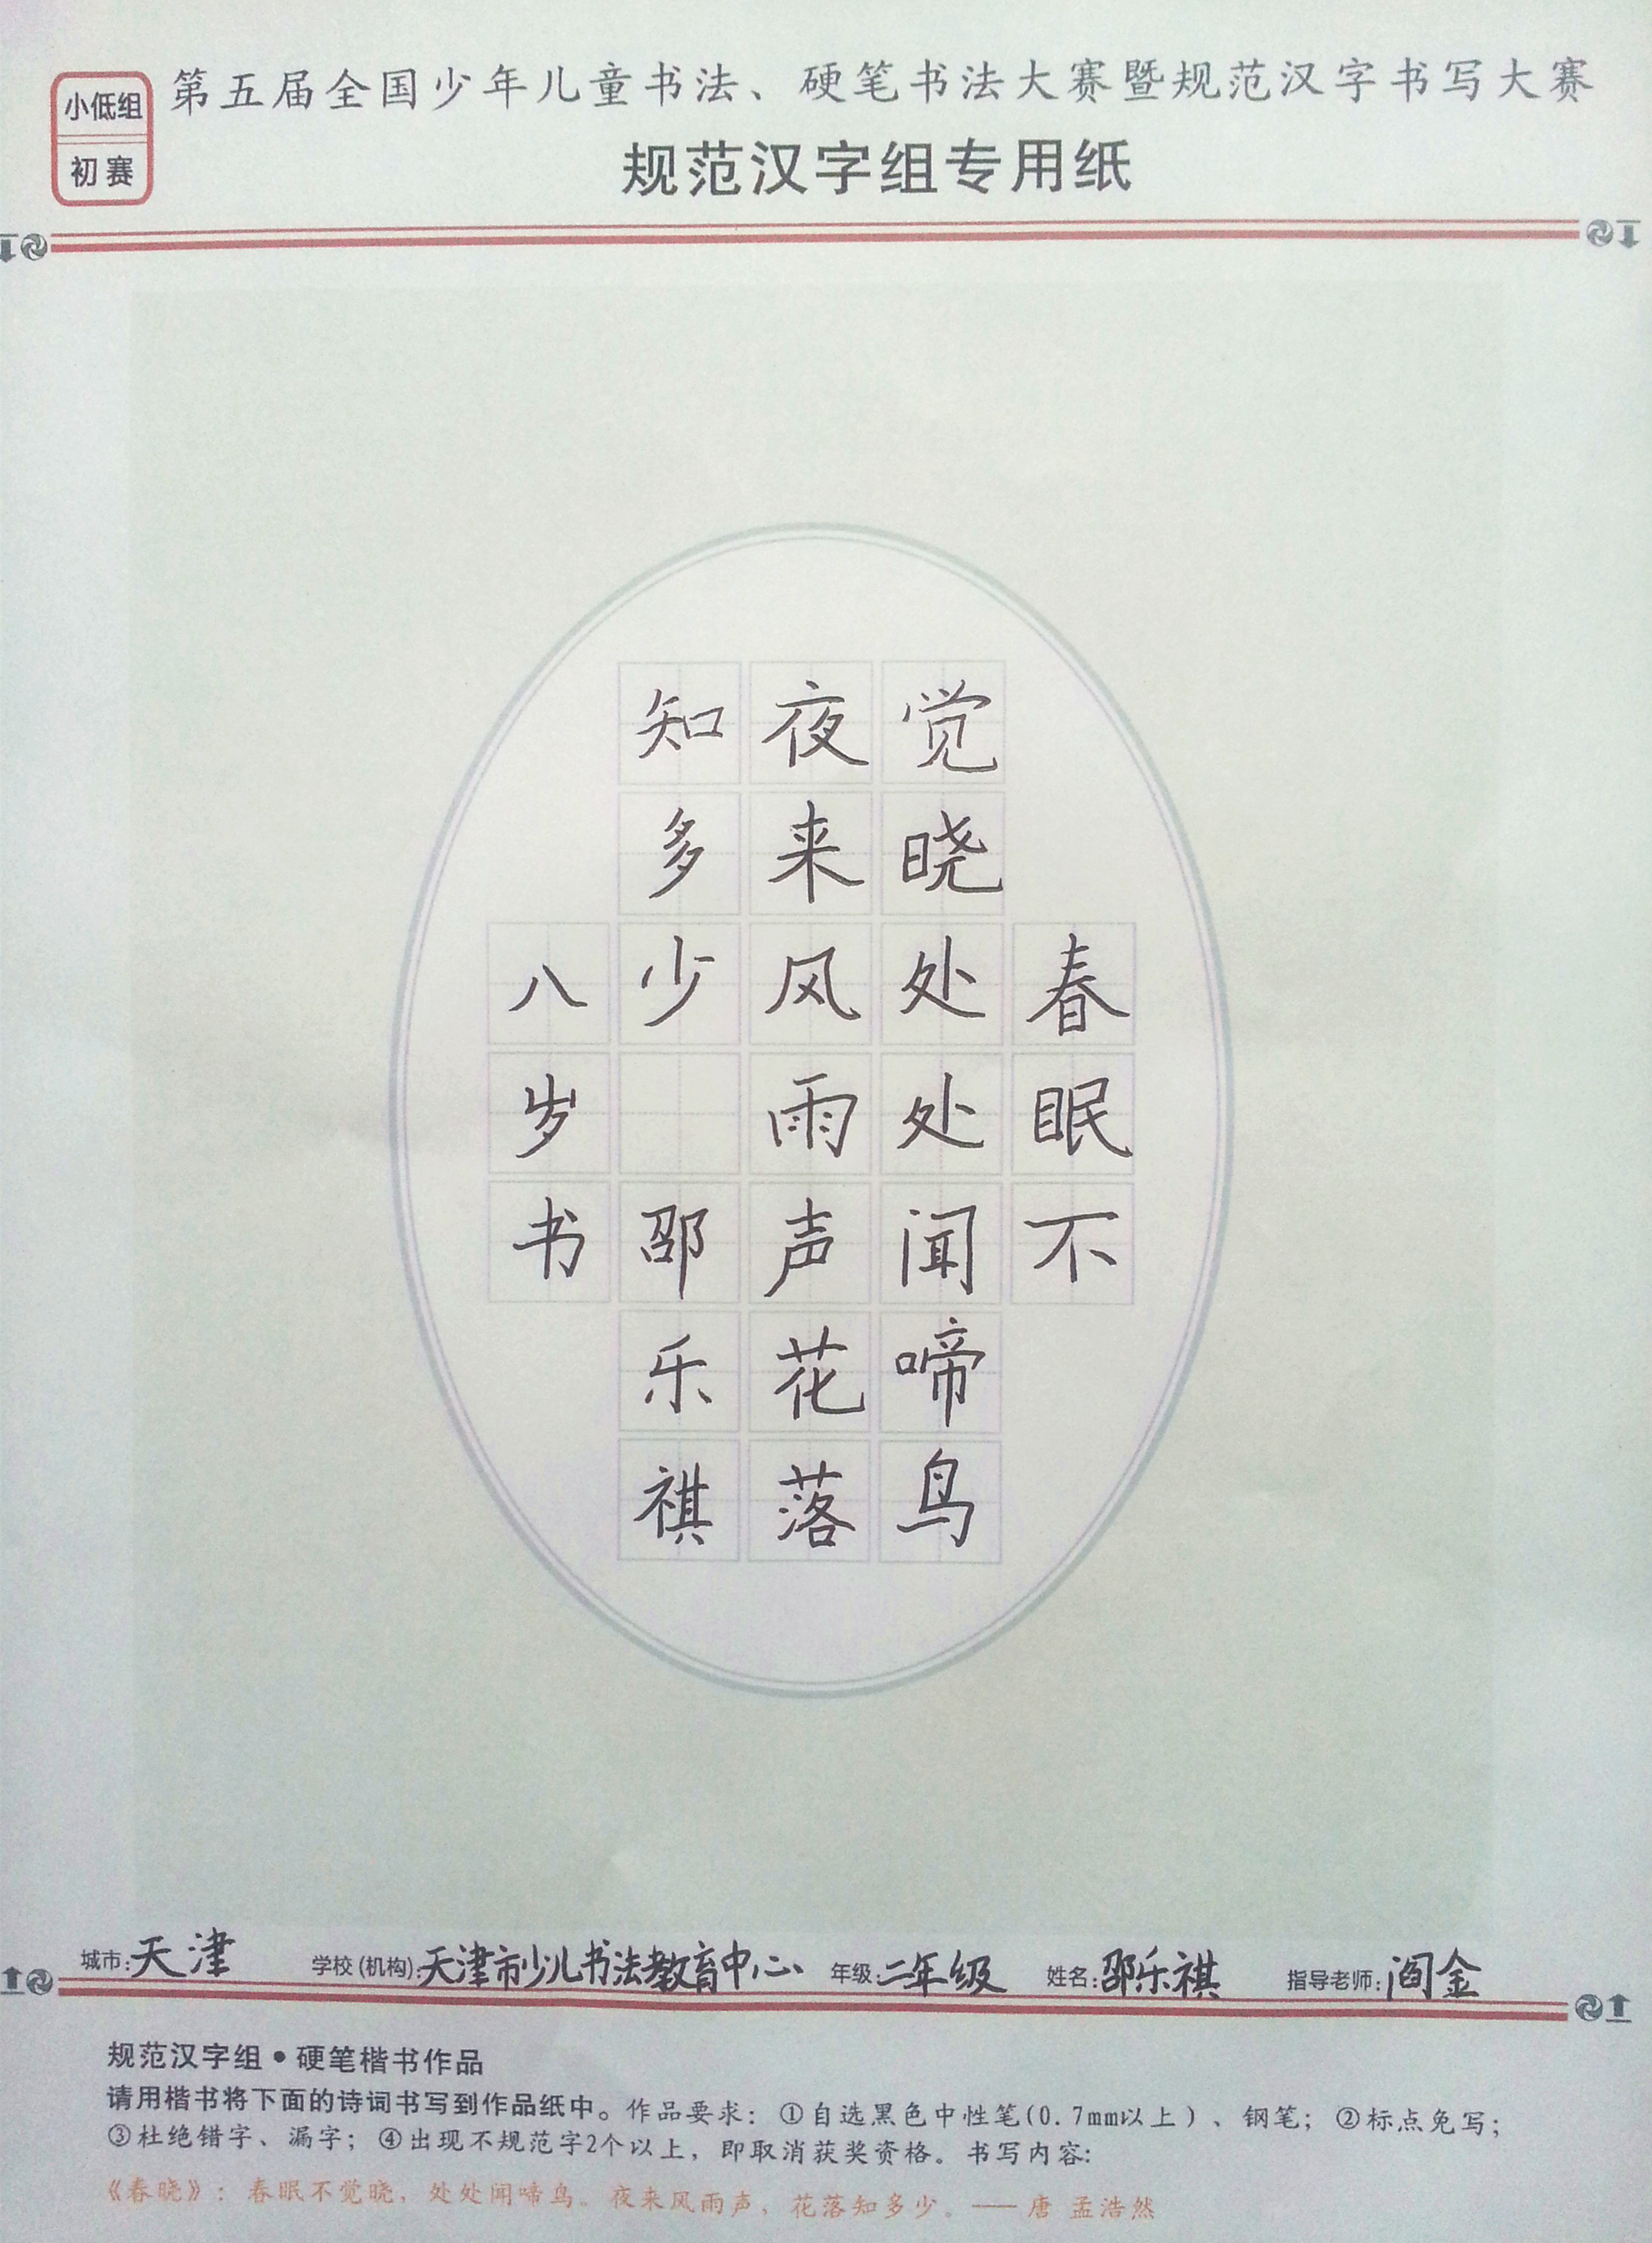 小低组
初赛
第五届全国少年儿童书法、硬笔书法大赛暨规范汉字书写大赛
规范汉字组专用纸
春眠不
觉晓处处闻啼鸟
夜来风雨声花落
知多少 邵乐祺
八岁书
城市:天津 学校(机构):天津市少儿书法教育中心 年级:二年级 姓名:邵乐祺 指导老师:阎金
规范汉字组•硬笔楷书作品
请用楷书将下面的诗词书写到作品纸中。作品要求：①自选黑色中性笔(0.7mm以上)、钢笔；②标点免写；
③杜绝错字、漏字；④出现不规范字2个以上，即取消获奖资格。书写内容:
《春晓》：春眠不觉晓，处处闻啼鸟。夜来风雨声，花落知多少。—— 唐 孟浩然